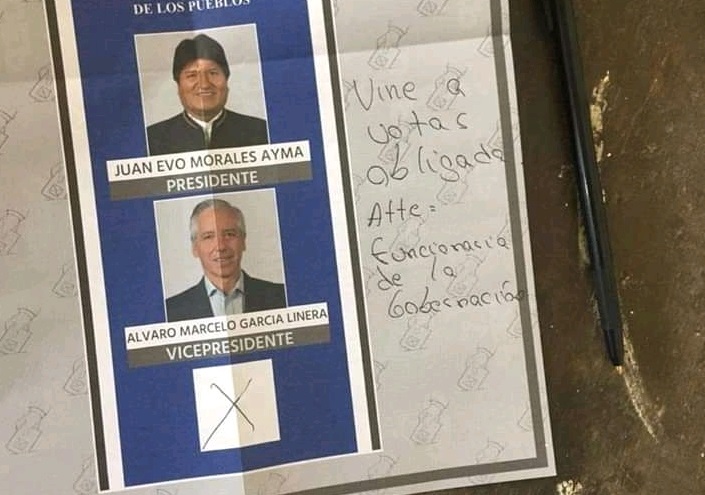 DE LOS PUEBLOS
JUAN EVO MORALES AYMA
PRESIDENTE
ALVARO MARCELO GARCIA LINERA
VICEPRESIDENTE
X
Vine a
votar
obligada
Atte:
funcionaria
de la
Gobernación